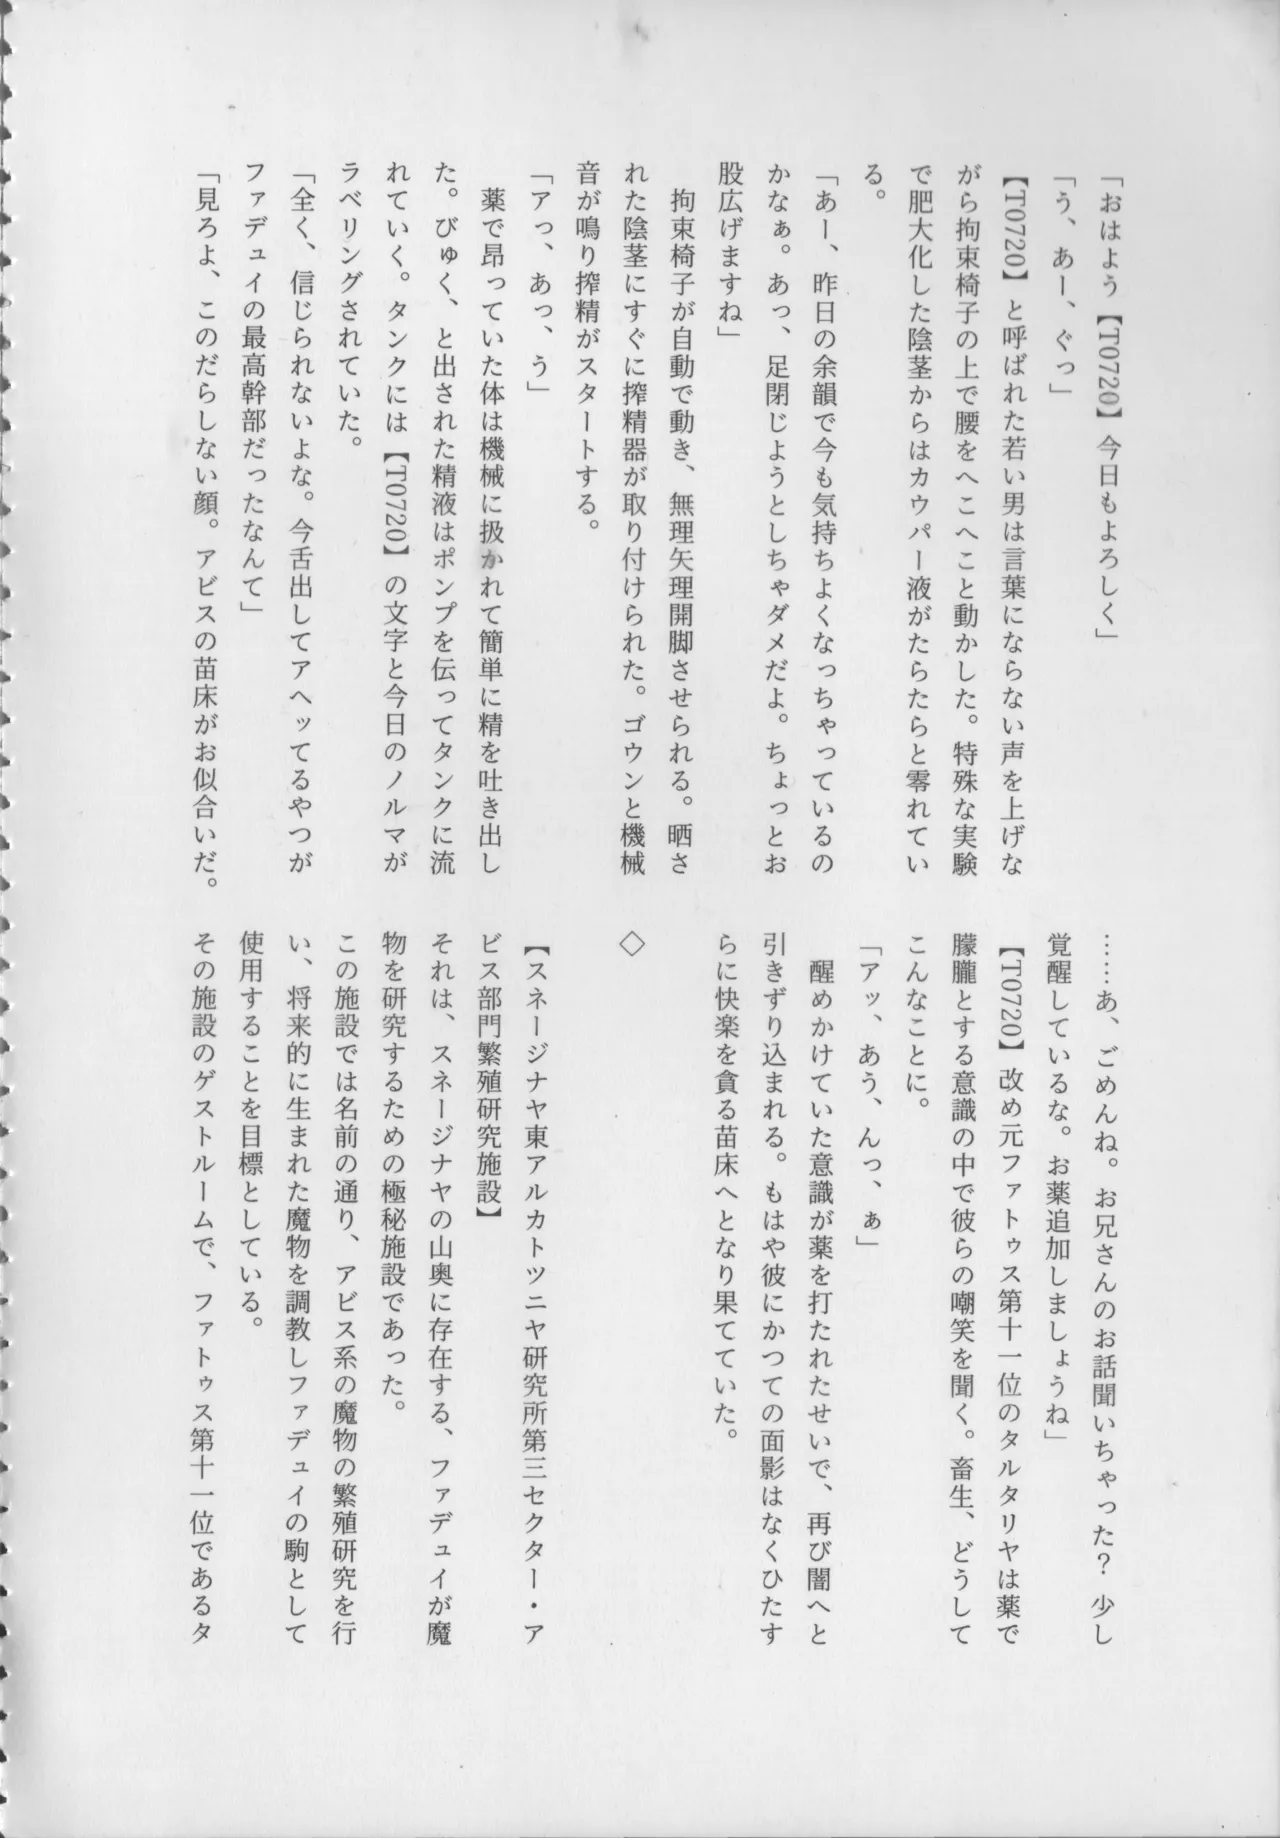 「おはよう【T0720】今日もよろしく」
「う、あー、ぐっ」
【T0720】と呼ばれた若い男は言葉にならない声を上げな
がら拘束椅子の上で腰をへこへこと動かした。特殊な実験
で肥大化した陰茎からはカウパー液がたらたらと零れてい
る。
「あー、昨日の余韻で今も気持ちよくなっちゃっているの
かなぁ。あっ、足閉じようとしちゃダメだよ。ちょっとお
股広げますね」
　拘束椅子が自動で動き、無理矢理開脚させられる。晒さ
れた陰茎にすぐに搾精器が取り付けられた。ゴウンと機械
音が鳴り搾精がスタートする。
「アっ、あっ、う」
　薬で昂っていた体は機械に扱かれて簡単に精を吐き出し
た。びゅく、と出された精液はポンプを伝ってタンクに流
れていく。タンクには【T0720】の文字と今日のノルマが
ラベリングされていた。
「全く、信じられないよな。今舌出してアヘッてるやつが
ファデュイの最高幹部だったなんて」
「見ろよ、このだらしない顔。アビスの苗床がお似合いだ。
……あ、ごめんね。お兄さんのお話聞いちゃった？ 少し
覚醒しているな。お薬追加しましょうね」
【T0720】改め元ファトゥス第十一位のタルタリヤは薬で
朦朧とする意識の中で彼らの嘲笑を聞く。畜生、どうして
こんなことに。
「アッ、あう、んっ、ぁ」
　醒めかけていた意識が薬を打たれたせいで、再び闇へと
引きずり込まれる。もはや彼にかつての面影はなくひたす
らに快楽を貪る苗床へとなり果てていた。
◇
【スネージナヤ東アルカトツニヤ研究所第三セクター・ア
ビス部門繁殖研究施設】
それは、スネージナヤの山奥に存在する、ファデュイが魔
物を研究するための極秘施設であった。
この施設では名前の通り、アビス系の魔物の繁殖研究を行
い、将来的に生まれた魔物を調教しファデュイの駒として
使用することを目標としている。
その施設のゲストルームで、ファトゥス第十一位であるタ